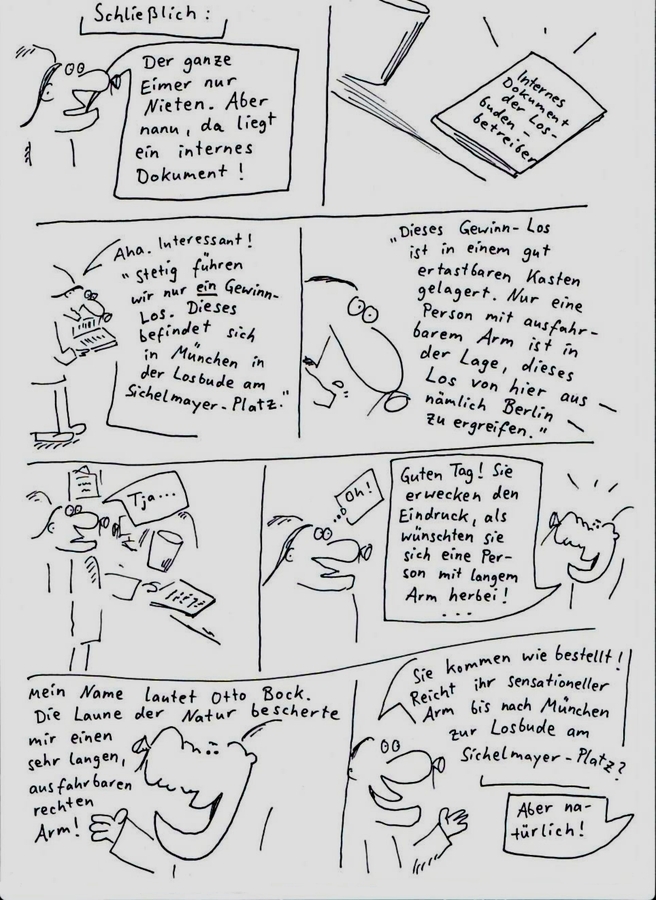 Schließlich:
Der ganze
Eimer nur
Nieten. Aber
nanu, da liegt
ein internes
Dokument!
Internes
Dokument
der Los-
buden -
betreiber
Aha. Interessant!
"Stetig führen
wir nur ein Gewinn-
Los. Dieses
befindet sich
in München in
der Losbude am
Sichelmayer-Platz."
"Dieses Gewinn-Los
ist in einem gut
ertastbaren Kasten
gelagert. Nur eine
Person mit ausfahr-
barem Arm ist in
der Lage, dieses
Los von hier aus -
nämlich Berlin -
zu ergreifen."
Tja...
Oh!
Guten Tag! Sie
erwecken den
Eindruck, als
wünschten sie
sich eine Per-
son mit langem
Arm herbei!
...
Mein Name lautet Otto Bock.
Die Laune der Natur bescherte
mir einen
sehr langen,
ausfahrbaren
rechten
Arm!
Sie kommen wie bestellt!
Reicht ihr sensationeller
Arm bis nach München
zur Losbude am
Sichelmayer-Platz?
Aber na-
türlich!